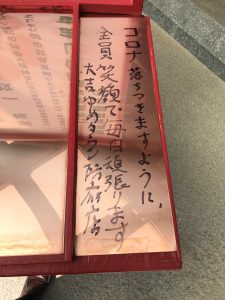 コロナ落ちつきますように。
全員笑顔で毎日頑張ります
大吉ゆめタウン防府店